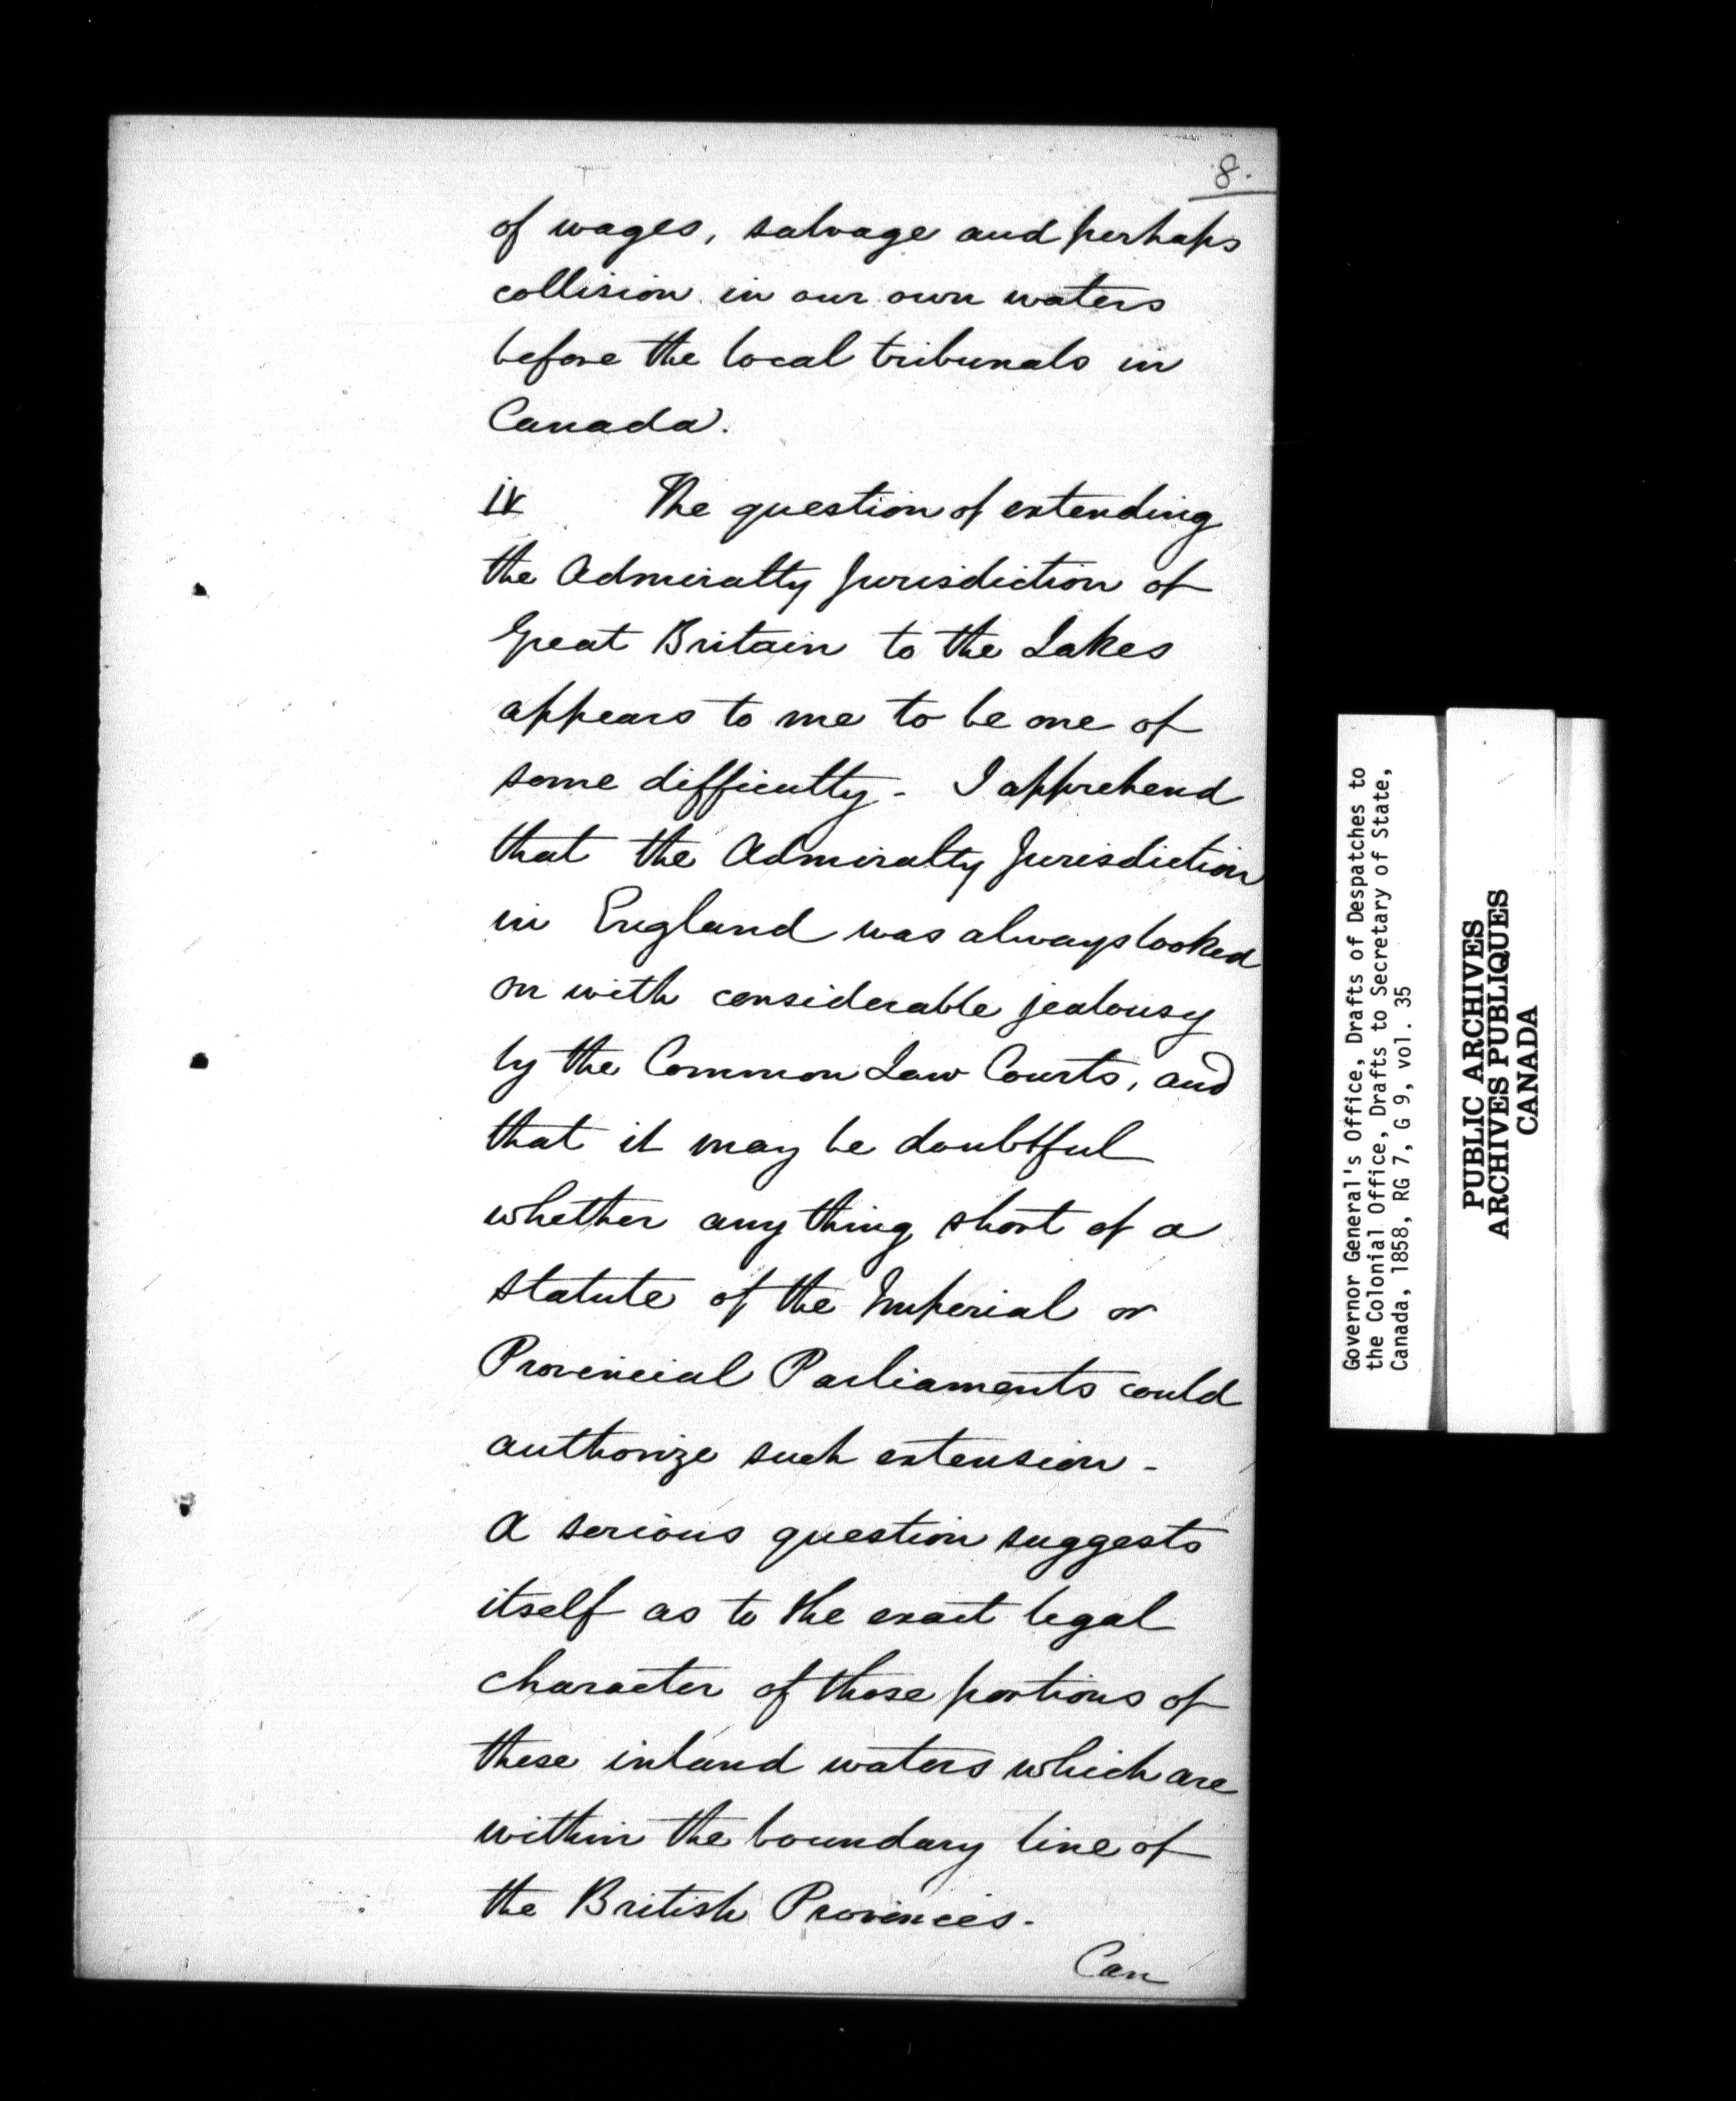 8.
of wages, salvage and perhaps
collision in our own waters
before the local tribunals in
Canada.
iv The question of extending
the Admiralty Jurisdiction of
Great Britain to the Lakes
appears to me to be one of
some difficulty. I apprehend
that the Admiralty Jurisdiction
in England was always looked
on with considerable jealousy
by the Common Law Courts, and
that it may be doubtful
whether any thing short of a
statute of the Imperial or
Provincial Parliaments could
authorize such extension.
A serious question suggests
itself as to the exact legal
character of those portions of
these inland waters which are
within the boundary line of
the British Provinces.
Can
Governor General's Office, Drafts of Despatches to
the Colonial Office, Drafts to Secretary of State,
Canada, 1858, RG 7, G 9, vol. 35
PUBLIC ARCHIVES
ARCHIVES PUBLIQUES
CANADA